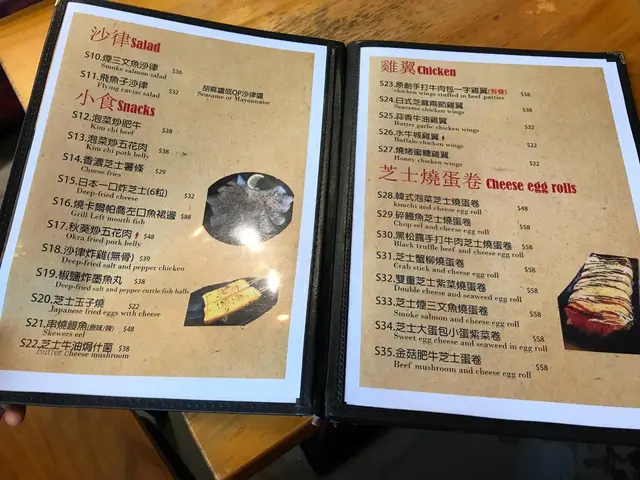 沙律Salad
S10.煙三文魚沙律 $36
Smoke salmon salad
S11.飛魚子沙律 $32
Flying caviar salad
胡麻醬或QP沙律醬
Seasame or Mayonnaise
小食Snacks
S12.泡菜炒肥牛 $38
Kim chi beef
S13.泡菜炒五花肉 $38
Kim chi pork belly
S14.香濃芝士薯條 $29
Cheese fries
S15.日本一口炸芝士(6粒) $32
Deep-fried cheese
S16.燒卡爾帕喬左口魚裙邊 $88
Grill Left mouth fish
S17.秋葵炒五花肉 $48
Okra fried pork belly
S18.沙律炸雞(無骨) $39
Deep-fried salt and pepper chicken
S19.椒鹽炸墨魚丸 $38
Deep-fried salt and pepper cuttle fish balls
S20.芝士玉子燒 $22
Japanese fried eggs with cheese
S21.串燒鰻魚(原味/辣) $48
Skewers eel
S22.芝士牛油焗什菌 $38
Butter cheese mushroom
雞翼Chicken
S23.原創手打牛肉包一字雞翼(有骨) $38
chicken wings stuffed in beef patties
S24.日式芝麻兩節雞翼 $22
Seasame chicken wings
S25.蒜香牛油雞翼 $22
Butter garlic chicken wings
S26.水牛城雞翼 $22
Buffalo chicken wings
S27.燒烤蜜糖雞翼 $22
Honey chicken wings
芝士燒蛋卷 Cheese egg rolls
S28.韓式泡菜芝士燒蛋卷 $48
kimchi and cheese egg roll
S29.碎鰻魚芝士燒蛋卷 $58
Chop eel and cheese egg roll
S30.黑松露手打牛肉芝士燒蛋卷 $58
Black truffle beef and cheese egg roll
S31.芝士蟹柳燒蛋卷 $58
Crab stick and cheese egg roll
S32.雙重芝士紫菜燒蛋卷 $58
Double cheese and seaweed egg roll
S33.芝士煙三文魚燒蛋卷 $58
Smoke salmon and cheese egg roll
S34.芝士大蛋包小蛋紫菜卷 $58
Sweet egg cheese and seaweed in egg roll
S35.金菇肥牛芝士蛋卷 $58
Beef mushroom and cheese egg roll